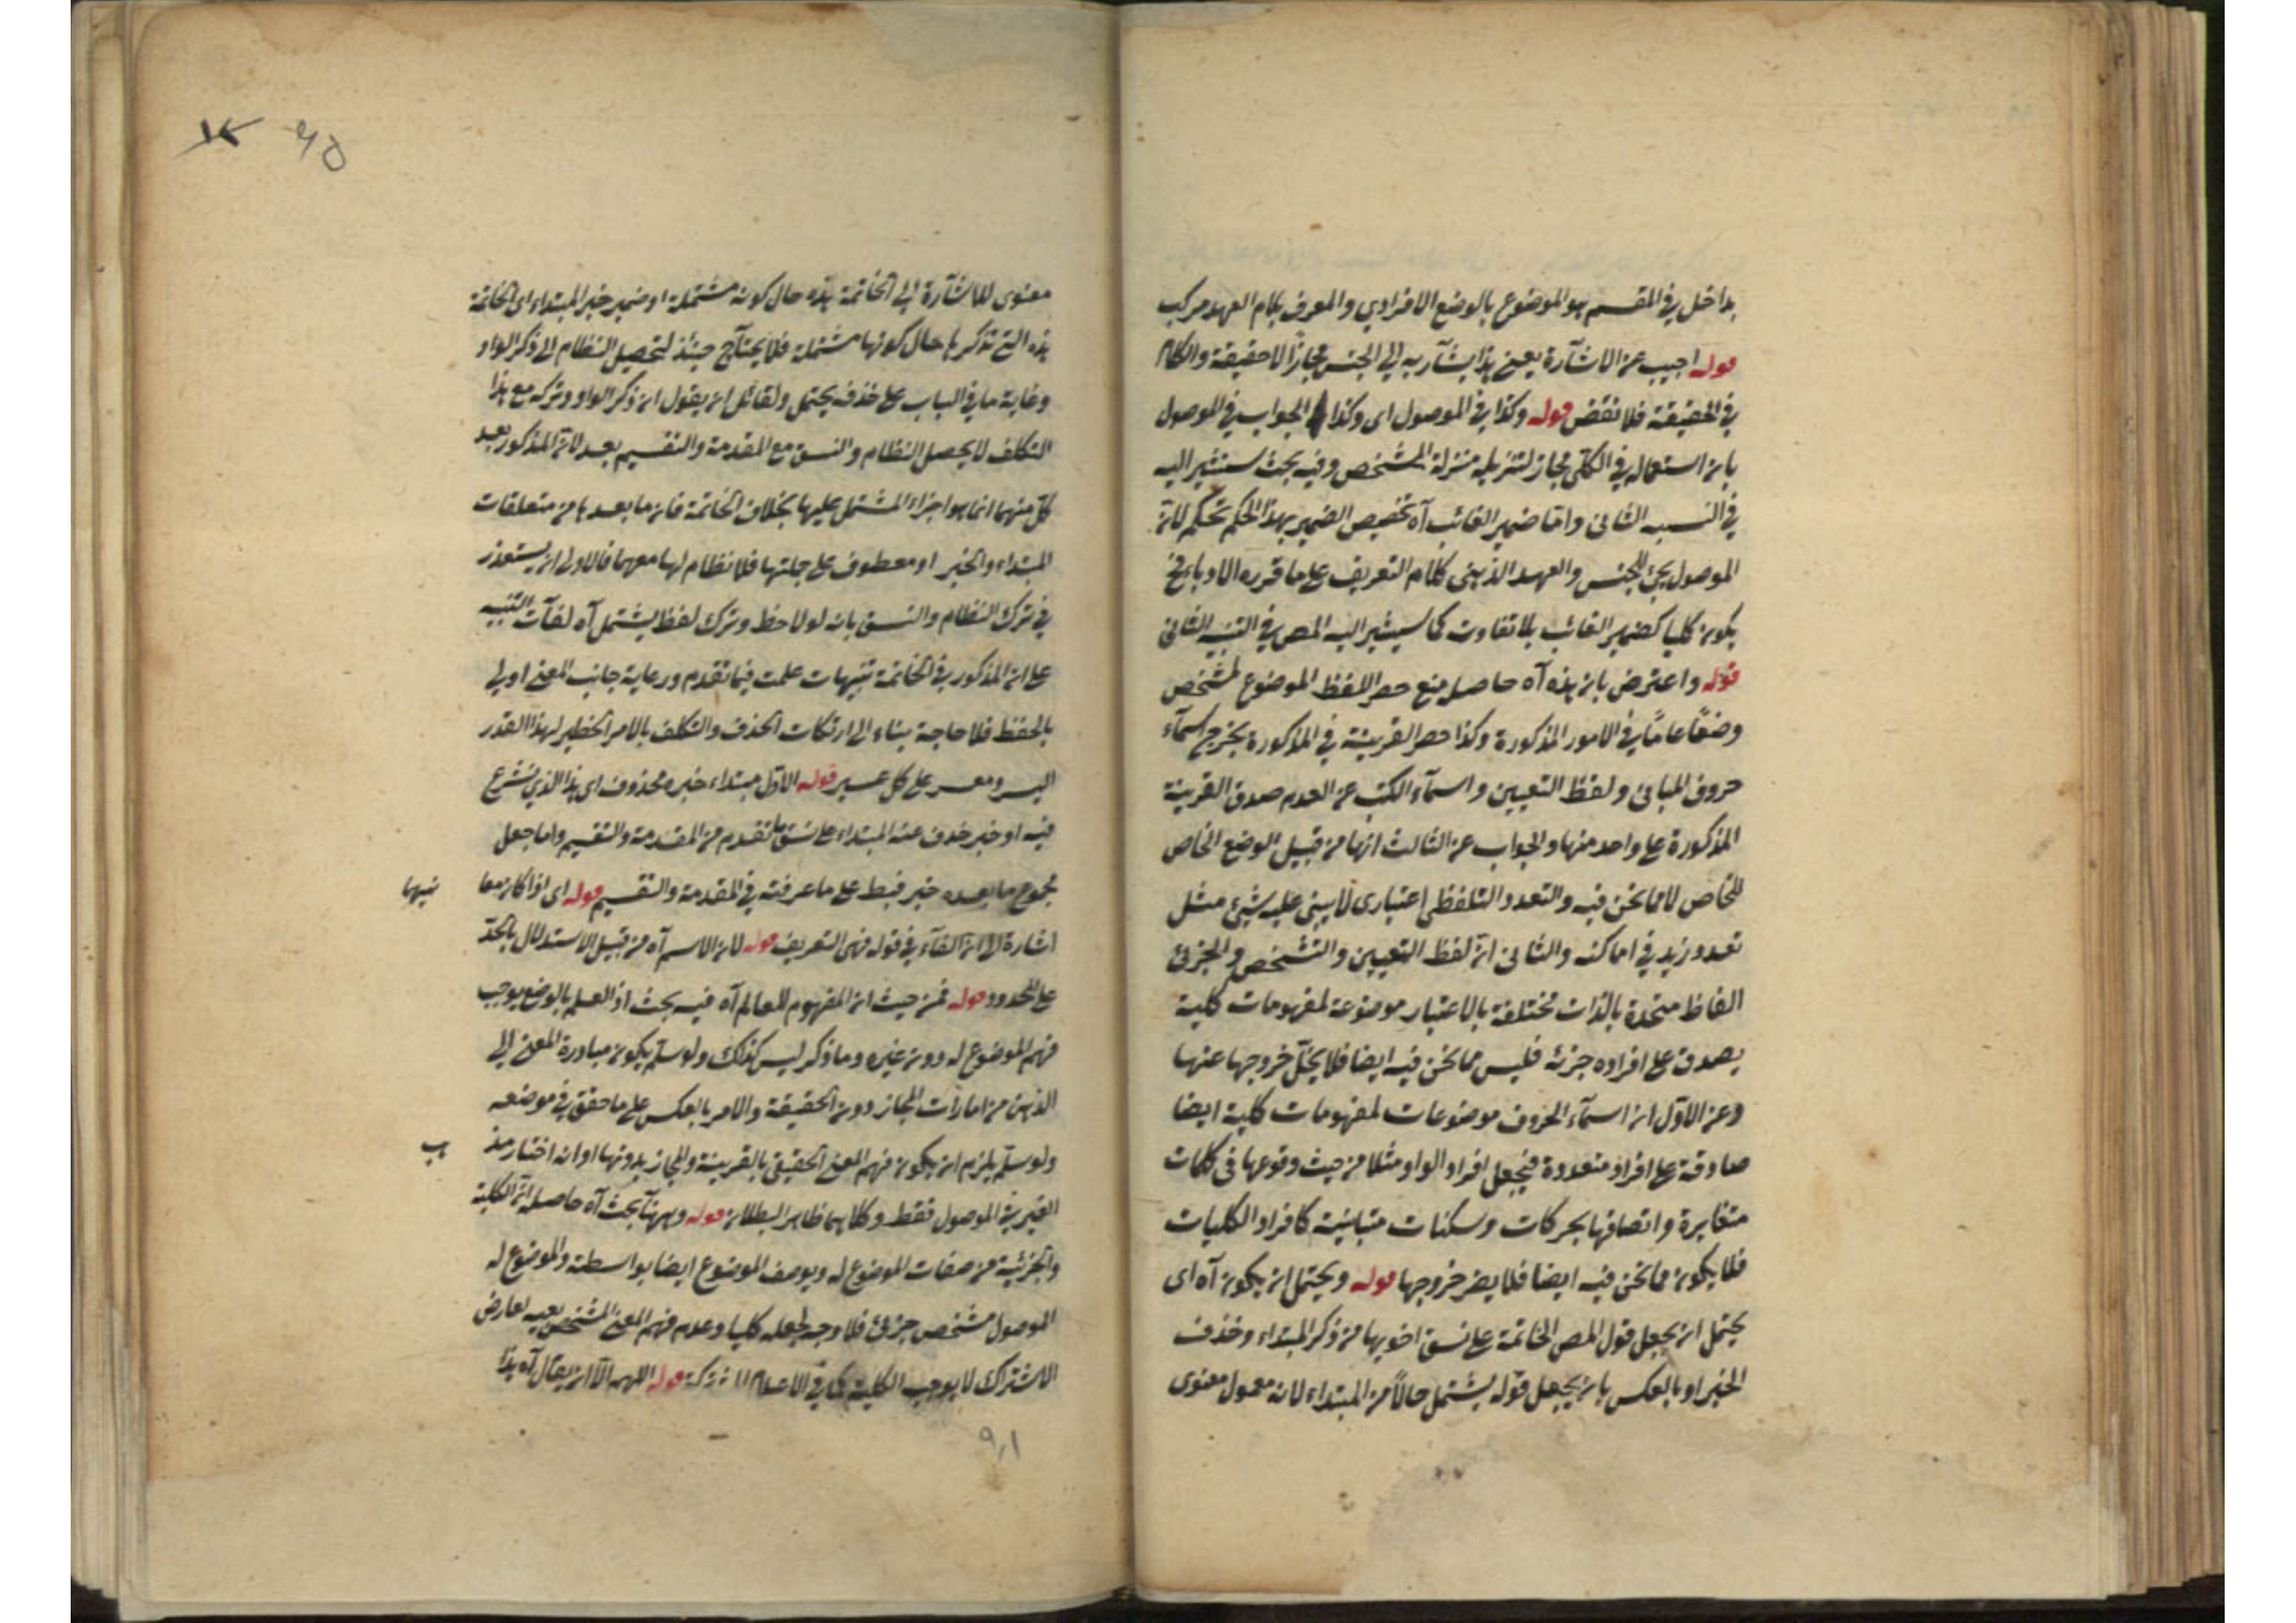 بداخل في المقسم هو الموضوع بالوضع الافرادي والمعرف بلام العهد مركب
قوله اجيب عن الاشآرة يعني هذا يشآر به الى الجنس مجازًا لا حقيقة والكلام
في الحقيقة فلا نقض قوله وكذا في الموصول اى وكذا الجواب في الموصول
بان استعماله في الكلّى مجاز لتنزيله منزلة المشخص وفيه بحث سنشير اليه
في التنبيه الثانى وامّا ضمير الغائب آه تخصيص الضمير بهذا الحكم تحكم لانّ
الموصول يجئ للجنس والعهد الذهنى كلام التعريف على ما قرره الادباء فح
يكون كليا كضمير الغائب بلا تفاوت كما سيشير اليه المص في التنبيه الثانى
قوله واعترض بان هذه آه حاصله منع حصر اللفظ الموضوع لمشخص
وضعًا عامًا في الامور المذكورة وكذا حصر القرينة في المذكورة بخروج اسمآء
حروف المبانى ولفظ التعيين واسمآء الكتب عن العدم صدق القرينة
المذكورة على واحد منها والجواب عن الثالث انها من قبيل الوضع الخاص
للخاص لا مما نحن فيه والتعدد التلفظى اعتبارى لا يبنى عليه شيئ مثل
تعدد زيد في اماكنه والثانى انّ لفظ التعيين والتشخص والجزئ
الفاظ متحدة بالذات مختلفة بالاعتبار موضوعة لمفهومات كلية
يصدق على افراده جزئه فليس مما نحن فيه ايضا فلا يخلّ خروجها عنها
وعن الاوّل ان اسمآء الحروف موضوعات لمفهومات كلية ايضا
صادقة على افراد متعددة فيجعل افراد الواو مثلا من حيث وقوعها فى كلمات
متغايرة واتصافها بحركات وسكنات متباينة كافراد الكليات
فلا يكون مما نحن فيه ايضا فلا يضر خروجها قوله ويحتمل ان يكون آه اى
يحتمل ان يجعل قول المص الخاتمة على نسق اخويها من ذكر المبتداء وحذف
الخبر او بالعكس بان يجعل قوله يشتمل حالاً من المبتداء لانه معمول معنوى
معنوى للاشآرة الى الخاتمة هذه حال كونه مشتملة او ضمير خبر المبتداء اى الخاتمة
هذه التى تذكر ها حال كونها مشتملة فلا يحتآج حينئذ لتحصيل النظام الى ذكر الواو
وغاية ما في الباب على حذفه يحتمل ولقائل ان يقول ان ذكر الواو وتركه مع هذا
التكلف لا يحصل النظام والنسق مع المقدمة والتقسيم بعد لانّ المذكور بعد
كلّ منهما انما هو اجزاء المشتمل عليها بخلاف الخاتمة فان ما بعدها من متعلقات
المبتداء والخبر او معطوف على جملتها فلا نظام لها معهما فالاولى ان يستعذر
في ترك النظام والنسق بانه لو لاحظ وترك لفظ يشتمل آه لفآت التنبيه
على ان المذكور في الخاتمة تنبيهات علمت فيما تقدم ورعاية جانب المعنى اولى
بالحفظ فلا حاجة بناء الى ارتكات الحذف والتكلف بالامر الخطير لهذا القدر
اليسر ومعسر على كل عسير قوله الاوّل مبتداء خبره محذوف اى هذا الذي نشرع
فيه او خبر حذف عنه المبتداء على نسق ما تقدم من المقدمة والتقسيم واما جعل
مجموع ما بعده خبر فبط على ما عرفته في المقدمة والتقسيم قوله اى اذا كان معا
نيها
اشارة الى ان الفآء في قوله فهى التعريف قوله لان الاسم آه من قبيل الاستدلال بالحدّ
على المحدود قوله فمن حيث ان المفهوم للعالم آه فيه بحث اذ العلم بالوضع يوجب
فهم الموضوع له دون غيره وما ذكر ليس كذلك ولو سلّم يكون مبادرة المعنى الى
الذهن من امارات المجاز دون الحقيقة والامر بالعكس على ما حقق في موضعه
ولو سلّم يلزم ان يكون فهم المعنى الحقيقى بالقرينة والمجاز بدونها او انه اختار مذ
هب
الغير في الموصول فقط وكلاهما ظاهر البطلان قوله وههنآ بحث آه حاصله انّ الكلية
والجزئية من صفات الموضوع له ويوصف الموضوع ايضا بواسطة والموضوع له
الموصول مشخص جزئ فلا وجه لجعله كليا وعدم فهم المعنى المشخص بعينه لعارض
الاشتراك لا يوجب الكلية كما في الاعلام المشتركة قوله اللهم الّا ان يقآل آه هذا
٩٨١
٦٥